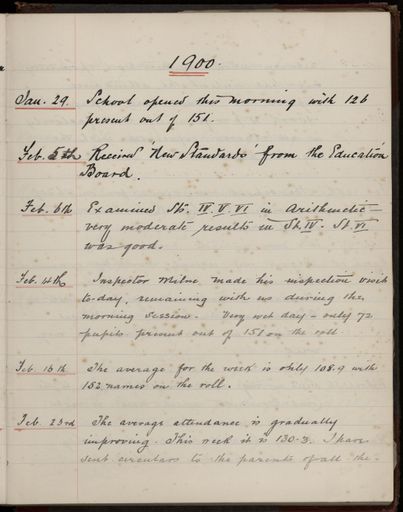 1900.
Jan. 29. School opened this morning with 126
present out of 151.
Feb. 5th Received 'New Standards' from the Education
Board.
Feb. 6th Examined Sts. IV. V. VI in arithmetic —
very moderate results in St. IV. St. VI
was good.
Feb. 14th Inspector Milne made his inspection visit
to-day, remaining with us during the
morning session. Very wet day — only 72
pupils present out of 151 on the roll
Feb. 16th The average for the week is only 108.9 with
152 names on the roll.
Feb. 23rd The average attendance is gradually
improving. This week it is 130.3. I have
sent circulars to the parents of all the